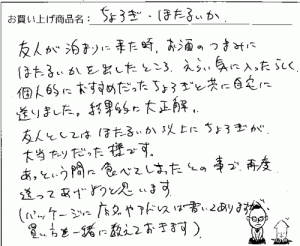 お買い上げ商品名: ちょろぎ・ほたるいか
友人が泊まりに来た時、お酒のつまみに
ほたるいかを出したところ、えらい気に入ったらしく、
個人的におすすめだったちょろぎと共に自宅に
送りました。結果的に大正解。
友人としてはほたるいか以上にちょろぎが
大当たりだった様です。
あっという間に食べてしまったとの事で再度
送ってあげようと思います
(パッケージに店名やアドレスは書いてありますが、
買い方を一緒に教えておきます)